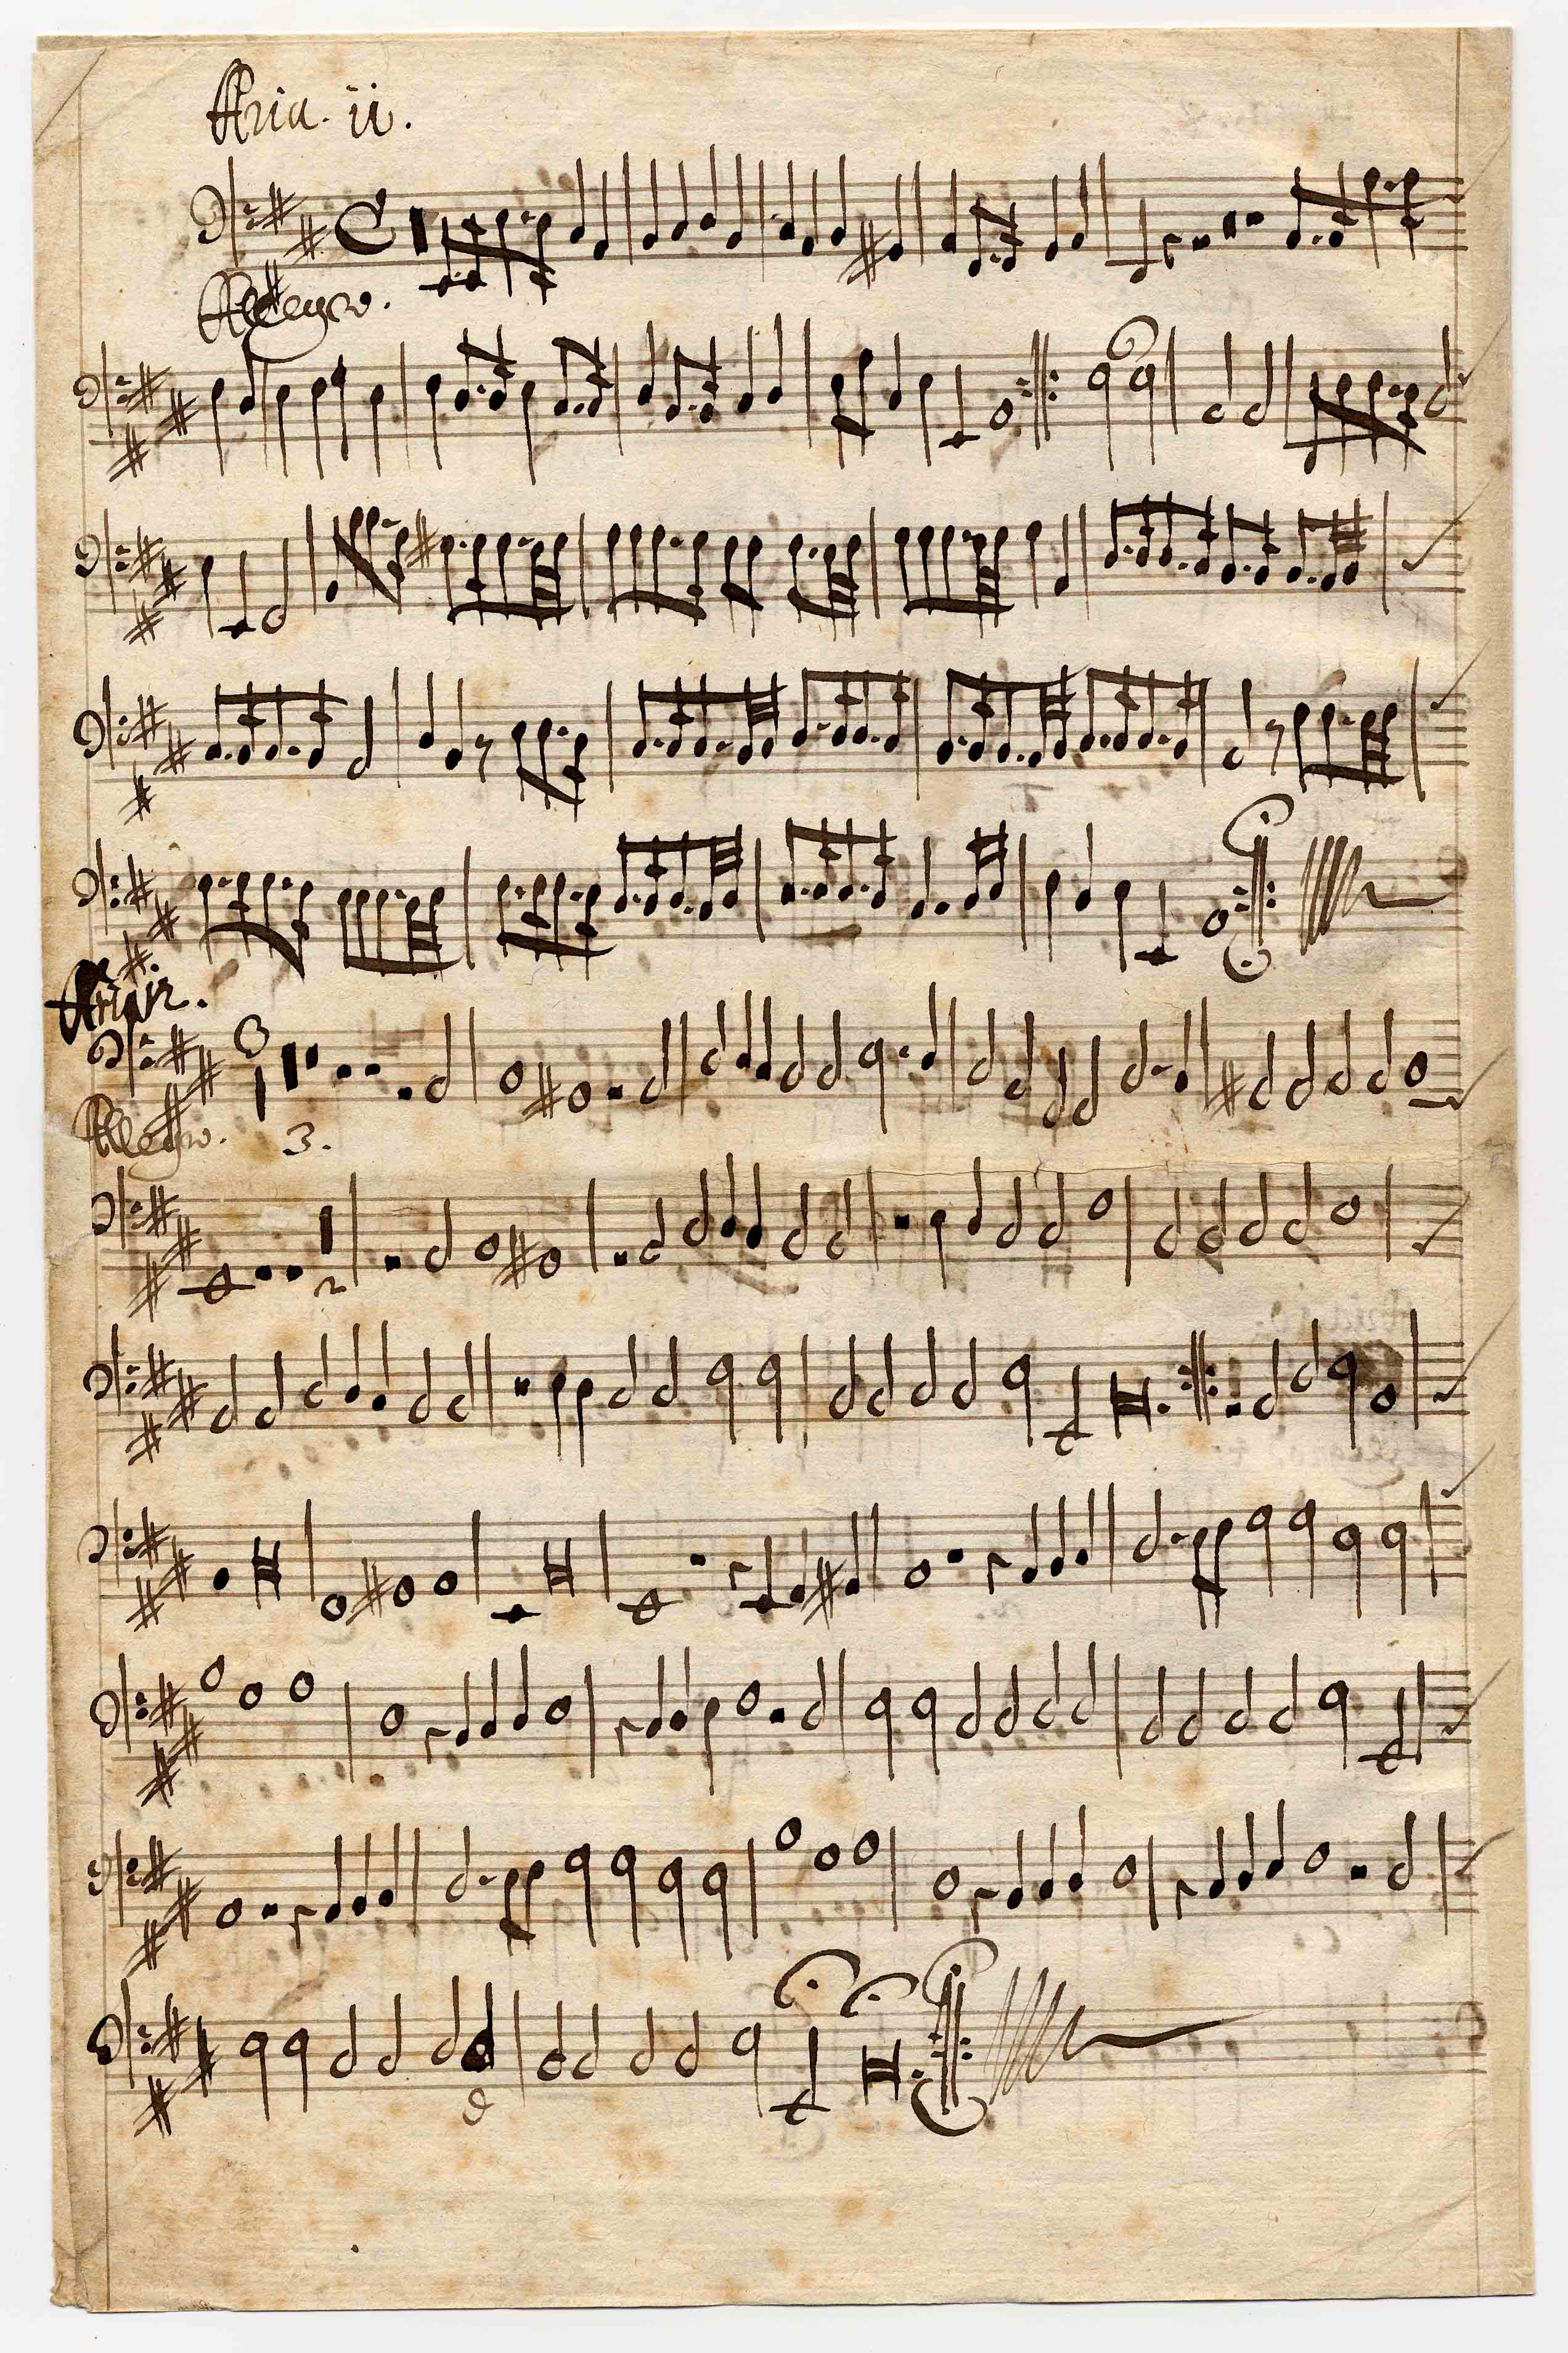 Aria. ii.
Allegro.
Allegro. 3.